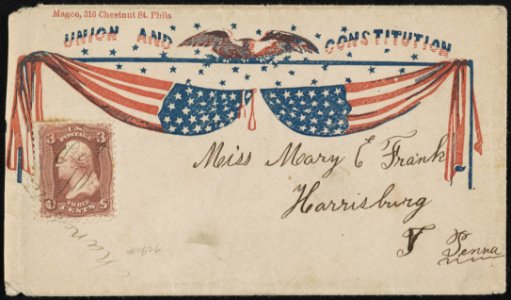 Magee, 316 Chestnut St. Phila
UNION AND CONSTITUTION
U.S. POSTAGE
3 3
THREE
U CENTS S
Miss Mary E Frank
Harrisburg
Penna